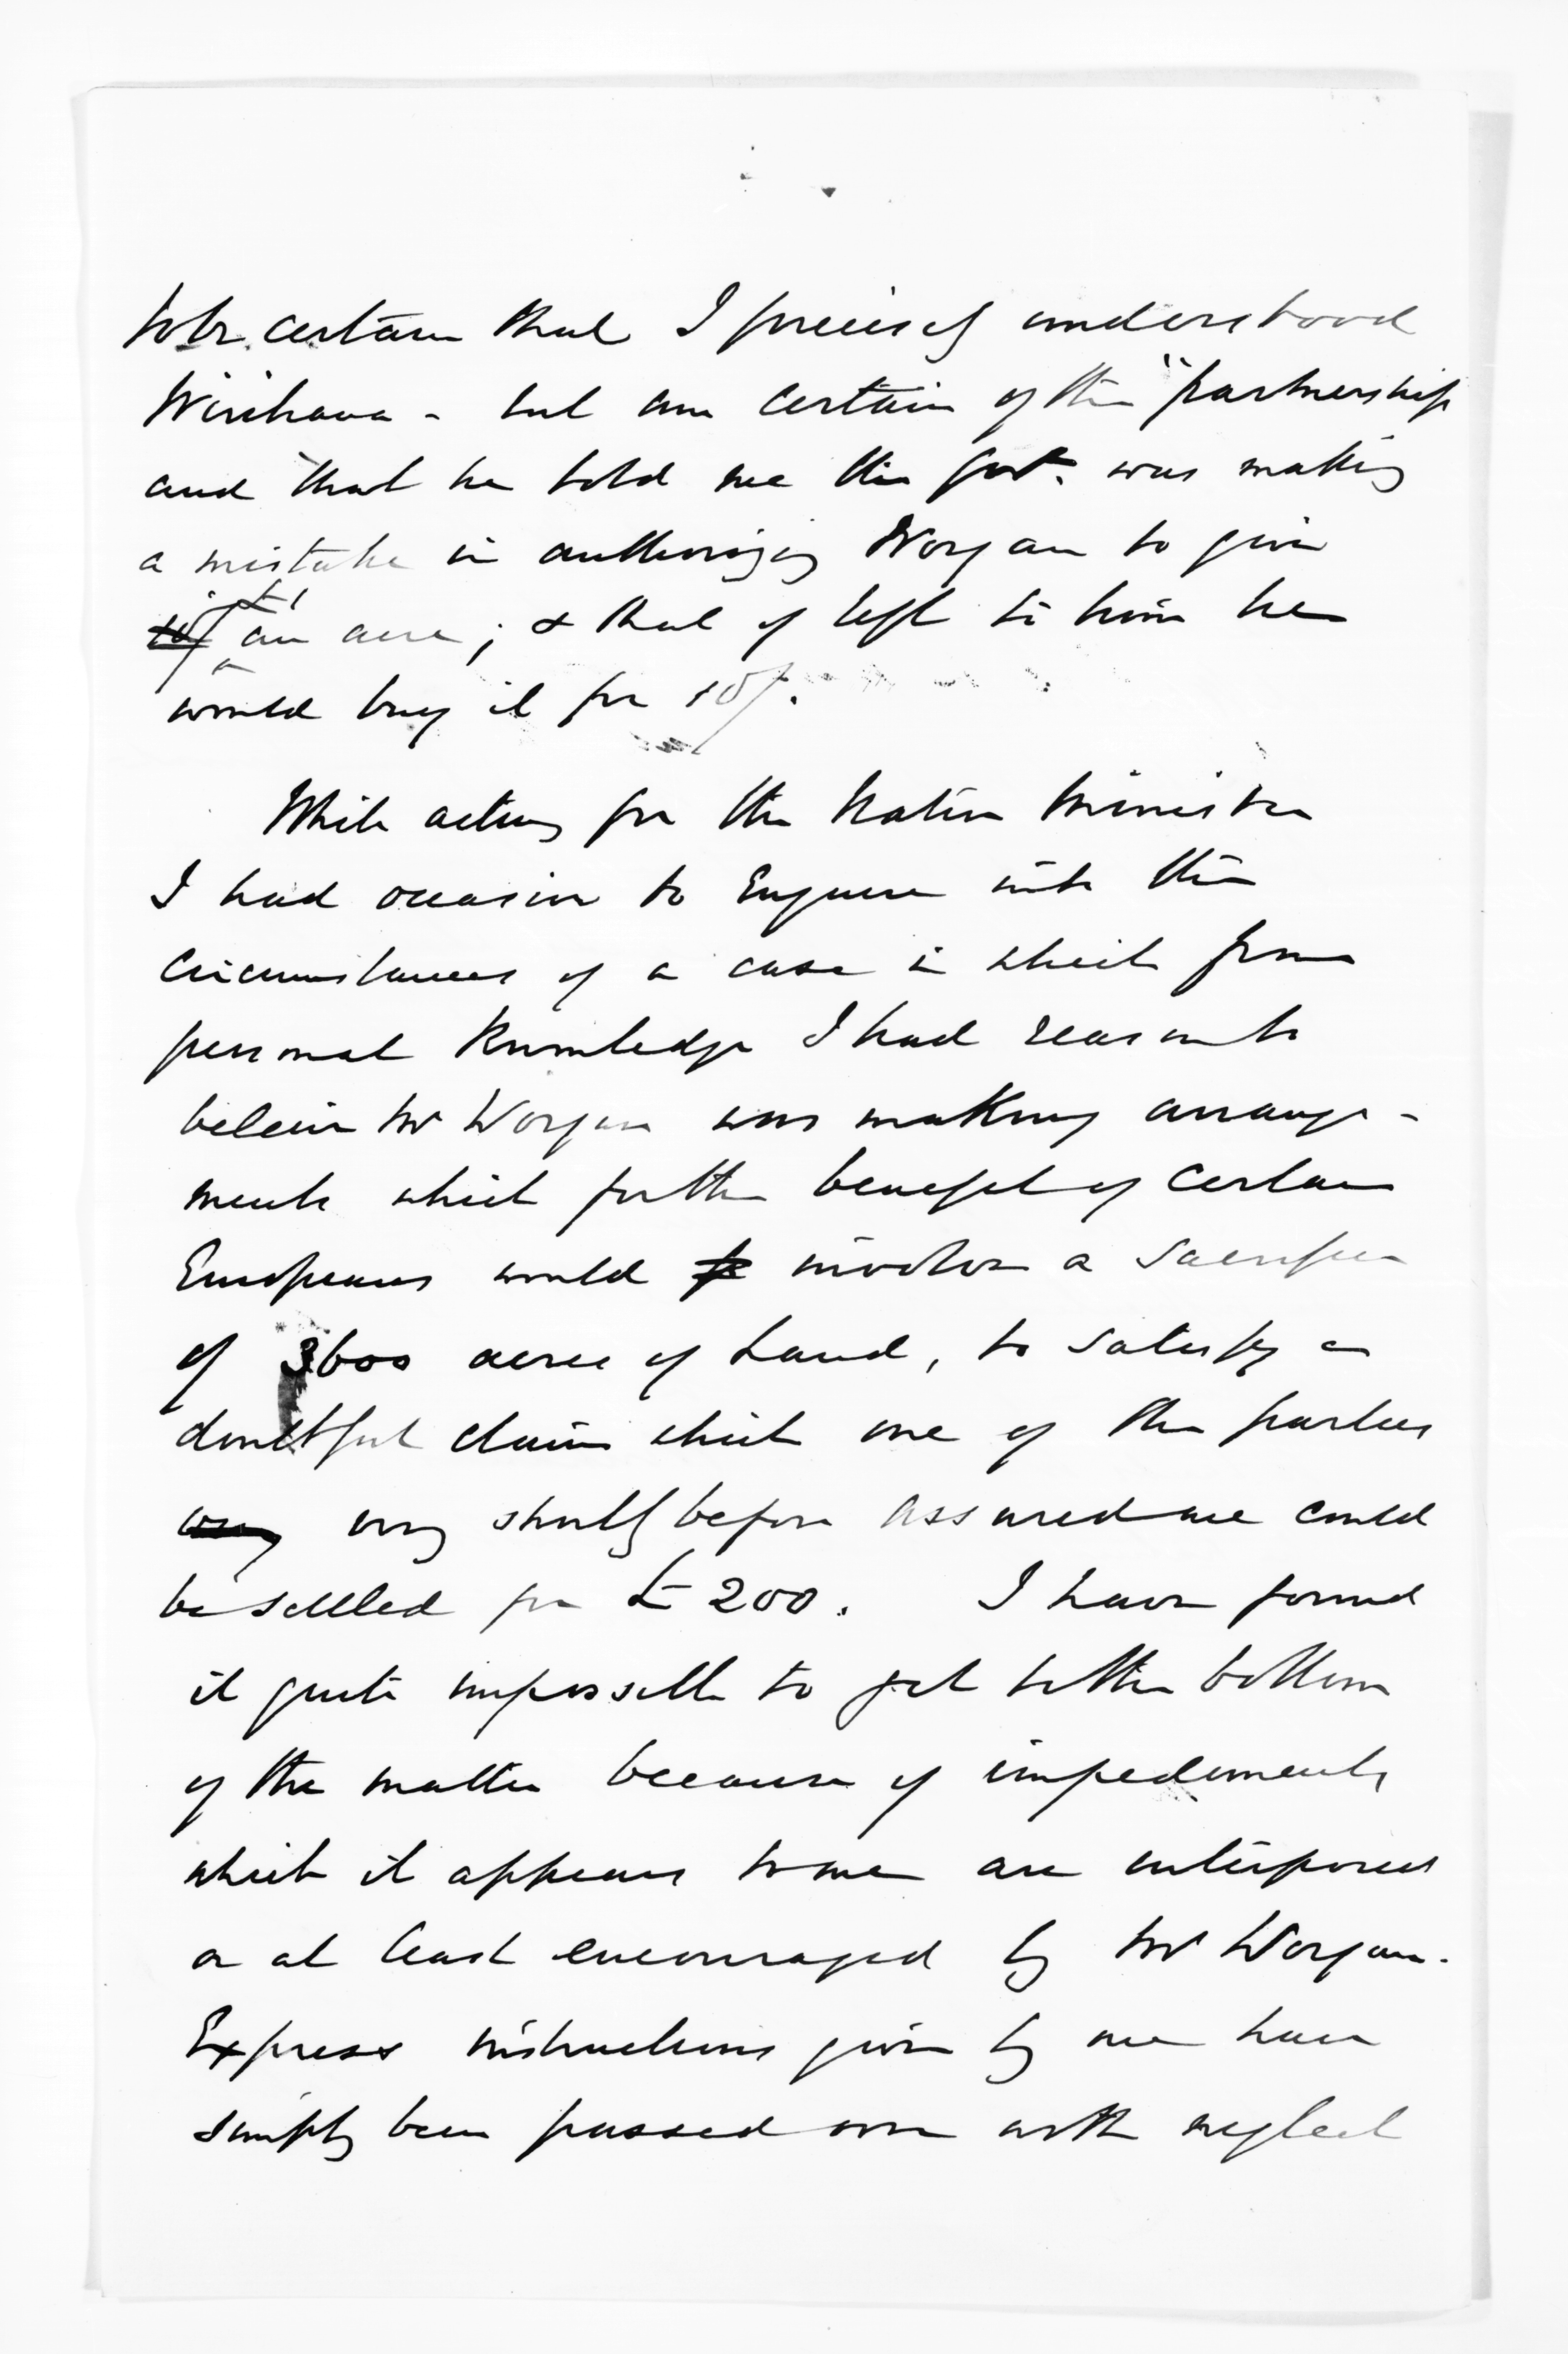 to be certain that I precisely understood
Wirihana - but am certain of the "partnership
and that he told me the govt. was making
a mistake in authorizing Worgan to give
10/ £1 an acre; & that if left to him he
would buy it for 10/.
While acting for the Native Minister
I had occasion to Enquire into the
circumstances of a case in which from
personal Knowledge I had reason to
beleive Mr Worgan was making arrange-
ments which for the benefit of certain
Europeans would involve a sacrifice
of 3600 acres of Land, to satisfy a
doubtful claim which one of the parties
very very shortly before assured me could
be settled for £200. I have found
it quite impossible to get to the bottom
of the matter because of impediments
which it appears to me are interposed
or at least encouraged by Mr Worgan.
Express instructions given by me have
simply been passed over with neglect